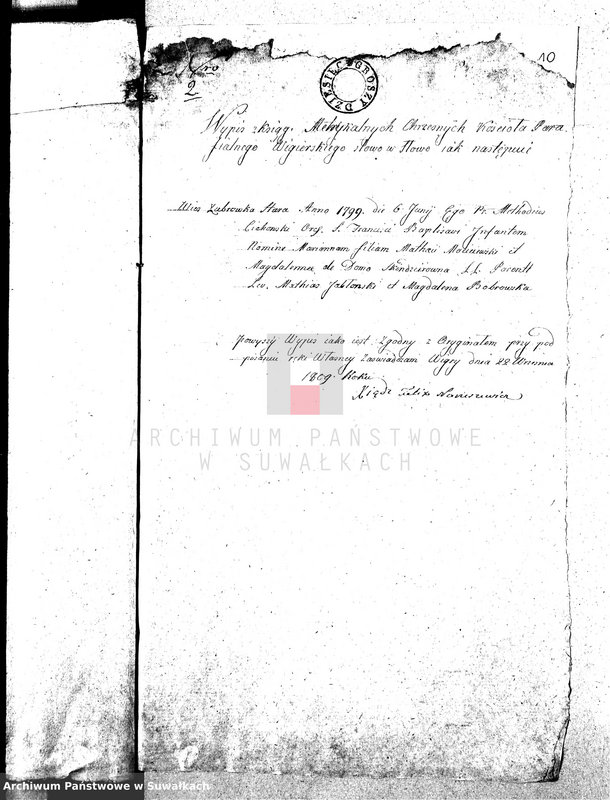 Nro
2
10
DZIESIĘC GROSZY
Wypis z Xiąg Metrykalnych Chrzesnych Koscioła Para
fialnego Wigierskiego słowo w słowo iak następuie
Wies Zubrowka Stara Anno 1799. die 6 Junij Ego Pr. Methodius
Ord. S. Francisci Baptisavi Infantem
Nomine Mariannam filiam Mathei et
Magdalenna de Domo L.L. Parentt
Lev. Mathias Jabłonski et Magdalena Bobrowska
Powyszy Wypis iako iest Zgodny z Oryginałem przy pod
pisaniu ręki Własney Zaswiadczam Wigry dnia 28 Wrzesnia
1809. Roku
Xiądz Felix
ARCHIWUM PAŃSTWOWE
W SUWAŁKACH
Archiwum Państwowe w Suwałkach